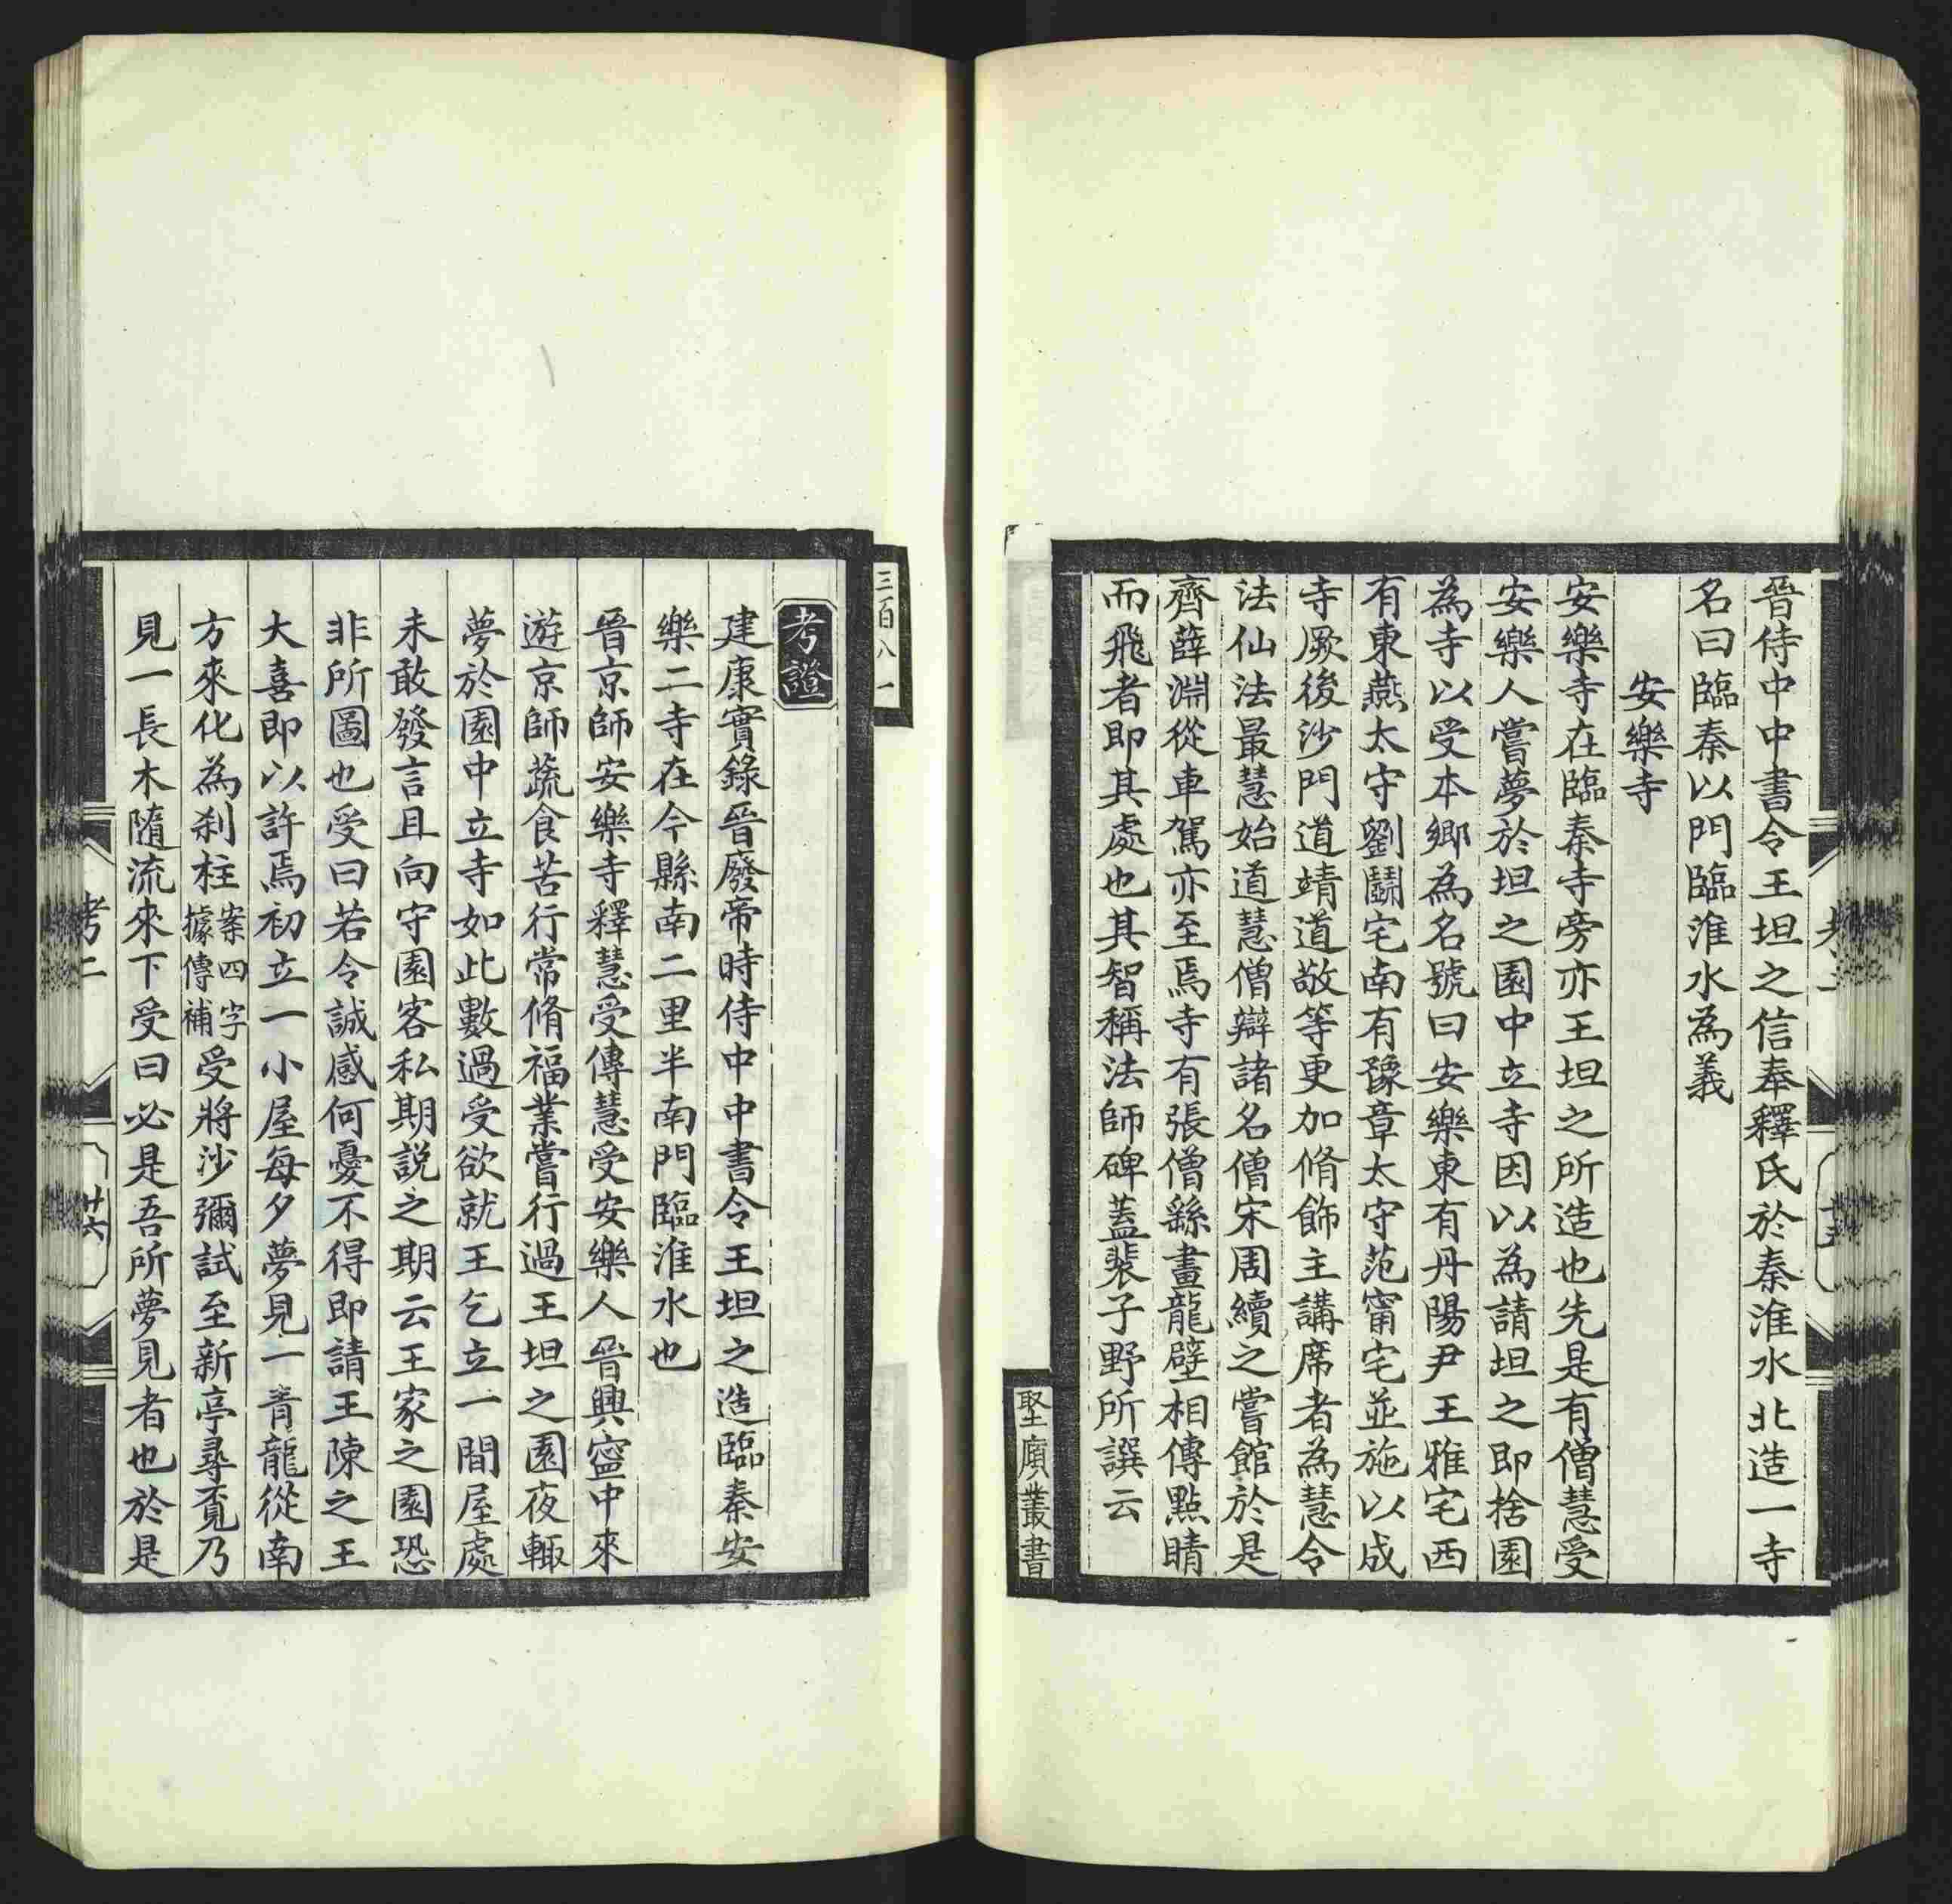 晉侍中中書令王坦之信奉釋氏於秦淮水北造一寺
名曰臨秦以門臨淮水為義
安樂寺
安樂寺在臨秦寺旁亦王坦之所造也先是有僧慧受
安樂人嘗夢於坦之園中立寺因以為請坦之即捨園
為寺以受本鄉為名號曰安樂東有丹陽尹王雅宅西
有東燕太守劉鬬宅南有豫章太守范甯宅並施以成
寺厥後沙門道靖道敬等更加脩飾主講席者為慧令
法仙法最慧始道慧僧辯諸名僧宋周續之嘗館於是
齊薛淵從車駕亦至焉寺有張僧繇畫龍壁相傳點睛
而飛者即其處也其智稱法師碑蓋裴子野所譔云
堅廎叢書
三百八一
考證
建康實錄晉廢帝時侍中中書令王坦之造臨秦安
樂二寺在今縣南二里半南門臨淮水也
晉京師安樂寺釋慧受傳慧受安樂人晉興寧中來
遊京師蔬食苦行常脩福業嘗行過王坦之園夜輒
夢於園中立寺如此數過受欲就王乞立一間屋處
未敢發言且向守園客私期説之期云王家之園恐
非所圖也受曰若令誠感何憂不得即請王陳之王
大喜即以許焉初立一小屋每夕夢見一青龍從南
方來化為刹柱案四字據傳補受將沙彌試至新亭尋覓乃
見一長木隨流來下受曰必是吾所夢見者也於是
考二
廿六